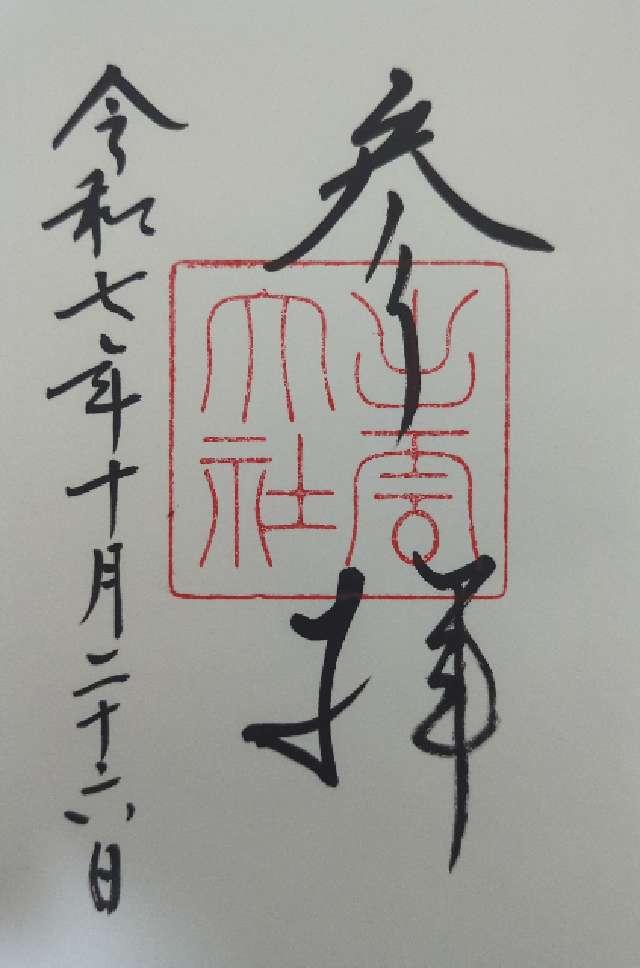 参拝
出雲大社
令和七年十月二十六日